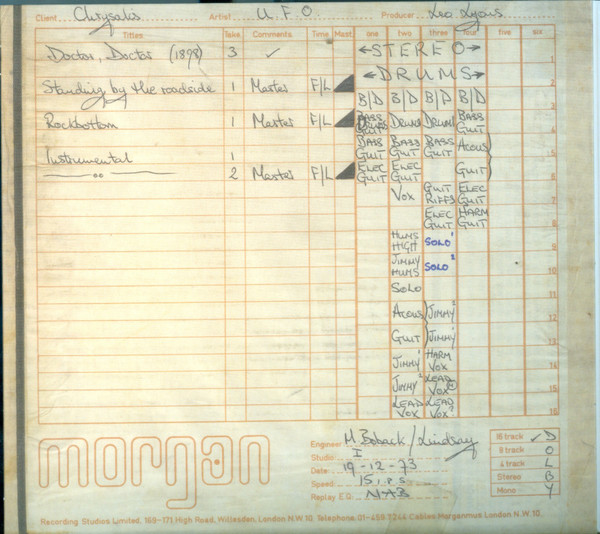 Client Chrysalis Artist U.F.O. Producer Leo Lyons
Titles Take Comments Time Mast. one two three four five six
Doctor, Doctor (1898) 3 ✓ ←STEREO→ 1
←DRUMS→ 2
Standing by the roadside 1 Master F/L
B/D B/D B/D B/D 3
Rockbottom 1 Master F/L Bass Guit Drums Drums Bass Guit 4
Instrumental 1 Bass Guit Bass Guit Bass Guit Acous 5
—〃— 2 Master F/L Elec Guit Elec Guit Guit 6
Vox Guit Riffs Elec Guit 7
Elec Guit Harm Guit 8
Hums High Solo 1 9
Jimmy Hums Solo 2 10
Solo 11
Acous Jimmy 2 12
Guit Jimmy 1 13
Jimmy 1 Harm Vox 14
Jimmy 2 Lead Vox 15
Lead Vox Lead Vox 16
morgan
Engineer M. Boback / Lindsay
Studio I
Date 19-12-73
Speed 15 i.p.s
Replay E.Q. NAB
16 track ✓ D
8 track O
4 track L
Stereo B
Mono Y
Recording Studios Limited, 169-171 High Road, Willesden, London N.W.10. Telephone 01-459 7244 Cables Morganmus London N.W.10.